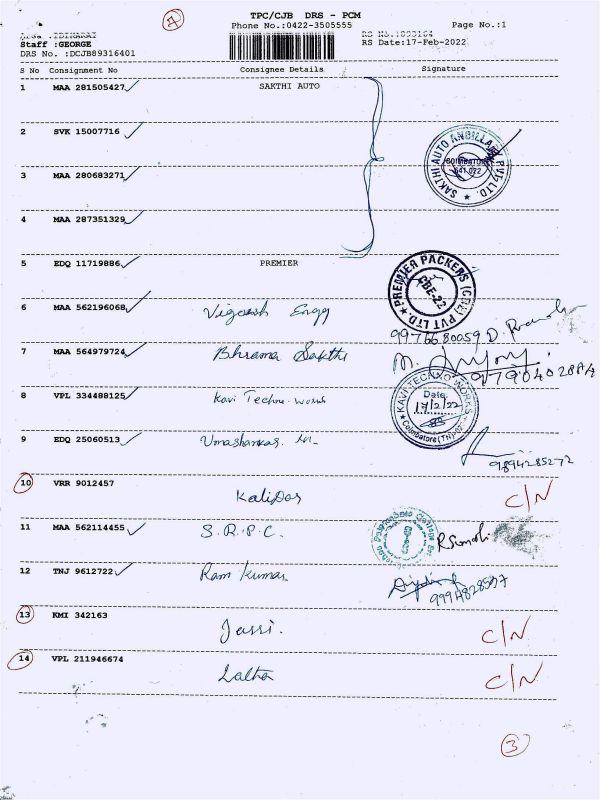 7
TPC/CJB DRS - PCM
Phone No.:0422-3505555 Page No.:1
Staff :GEORGE RS Date:17-Feb-2022
DRS No. :DCJB89316401
S No Consignment No Consignee Details Signature
1 MAA 281505427 SAKTHI AUTO
2 SVK 15007716
SAKTHI AUTO ANCILLARY PVT. LTD.
COIMBATORE
641 022
3 MAA 280683271
4 MAA 287351329
5 EDQ 11719886 PREMIER
PREMIER PACKERS (CBE) PVT LTD.
CBE-22
6 MAA 562196068 Vignesh Engg
9976680059 D.
7 MAA 564979724 Bhrama Sakthi M.
8 VPL 334488125 Kavi Techno works
KAVI TECHNO WORKS
Date
17/2/22
Coimbatore (TN)
9 EDQ 25060513 Umashankar. M
9894285272
10 VRR 9012457 Kalidas C/N
11 MAA 562114455 S.R.P.C.
12 TNJ 9612722 Ram Kumar
9994828597
13 KMI 342163 Jassi. C/N
14 VPL 211946674 Latha C/N
3